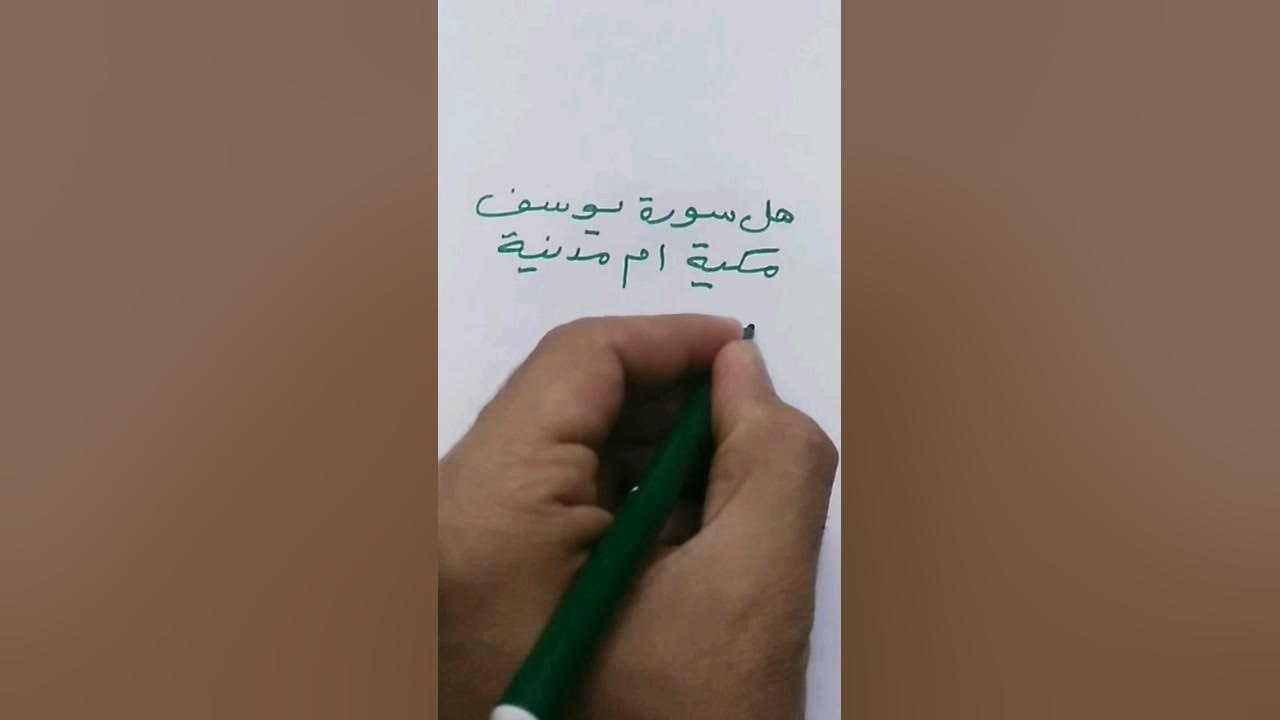 هل سورة يوسف
مكية ام مدنية